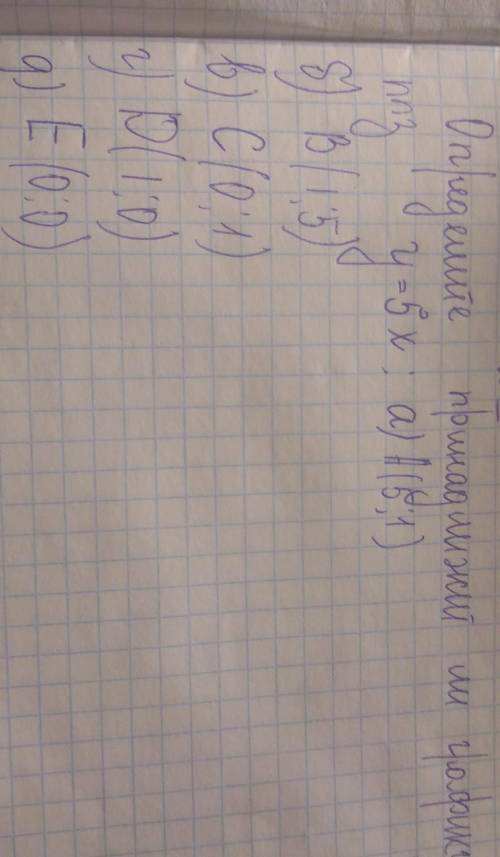 Определите принадлежит ли график
y = 5x : а) A(5;1)
б) B(1;5)
в) C(0;1)
г) D(1;0)
д) E(0;0)